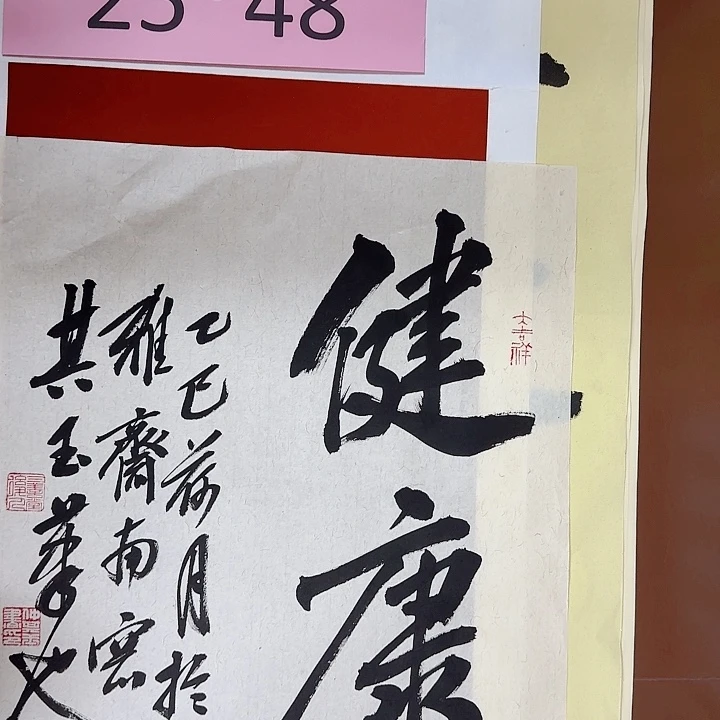 25 48
健康
大吉祥
乙巳荷月於
雅齋南窓
其玉筆也